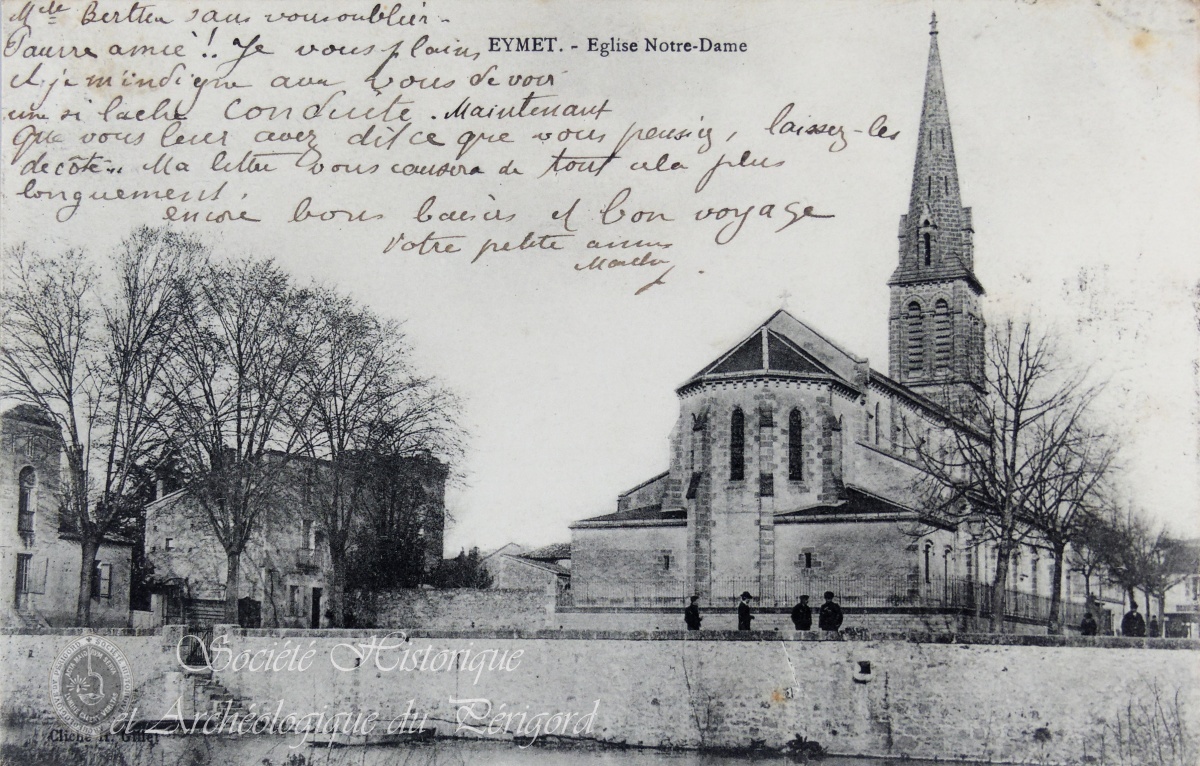 Mlle Berthe sans vous oublier -
Pauvre amie ! Je vous plains
EYMET. - Eglise Notre-Dame
et je m'indigne avec vous de voir
une si lache conduite. Maintenant
que vous leur avez dit ce que vous pensiez, laissez-les
de côté.. Ma lettre vous causera de tout cela plus
longuement.
encore bons baisers et bon voyage
Votre petite amie
Société Historique
et Archéologique du Périgord
Cliché